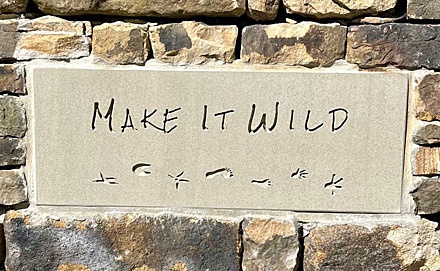 MAKE IT WILD